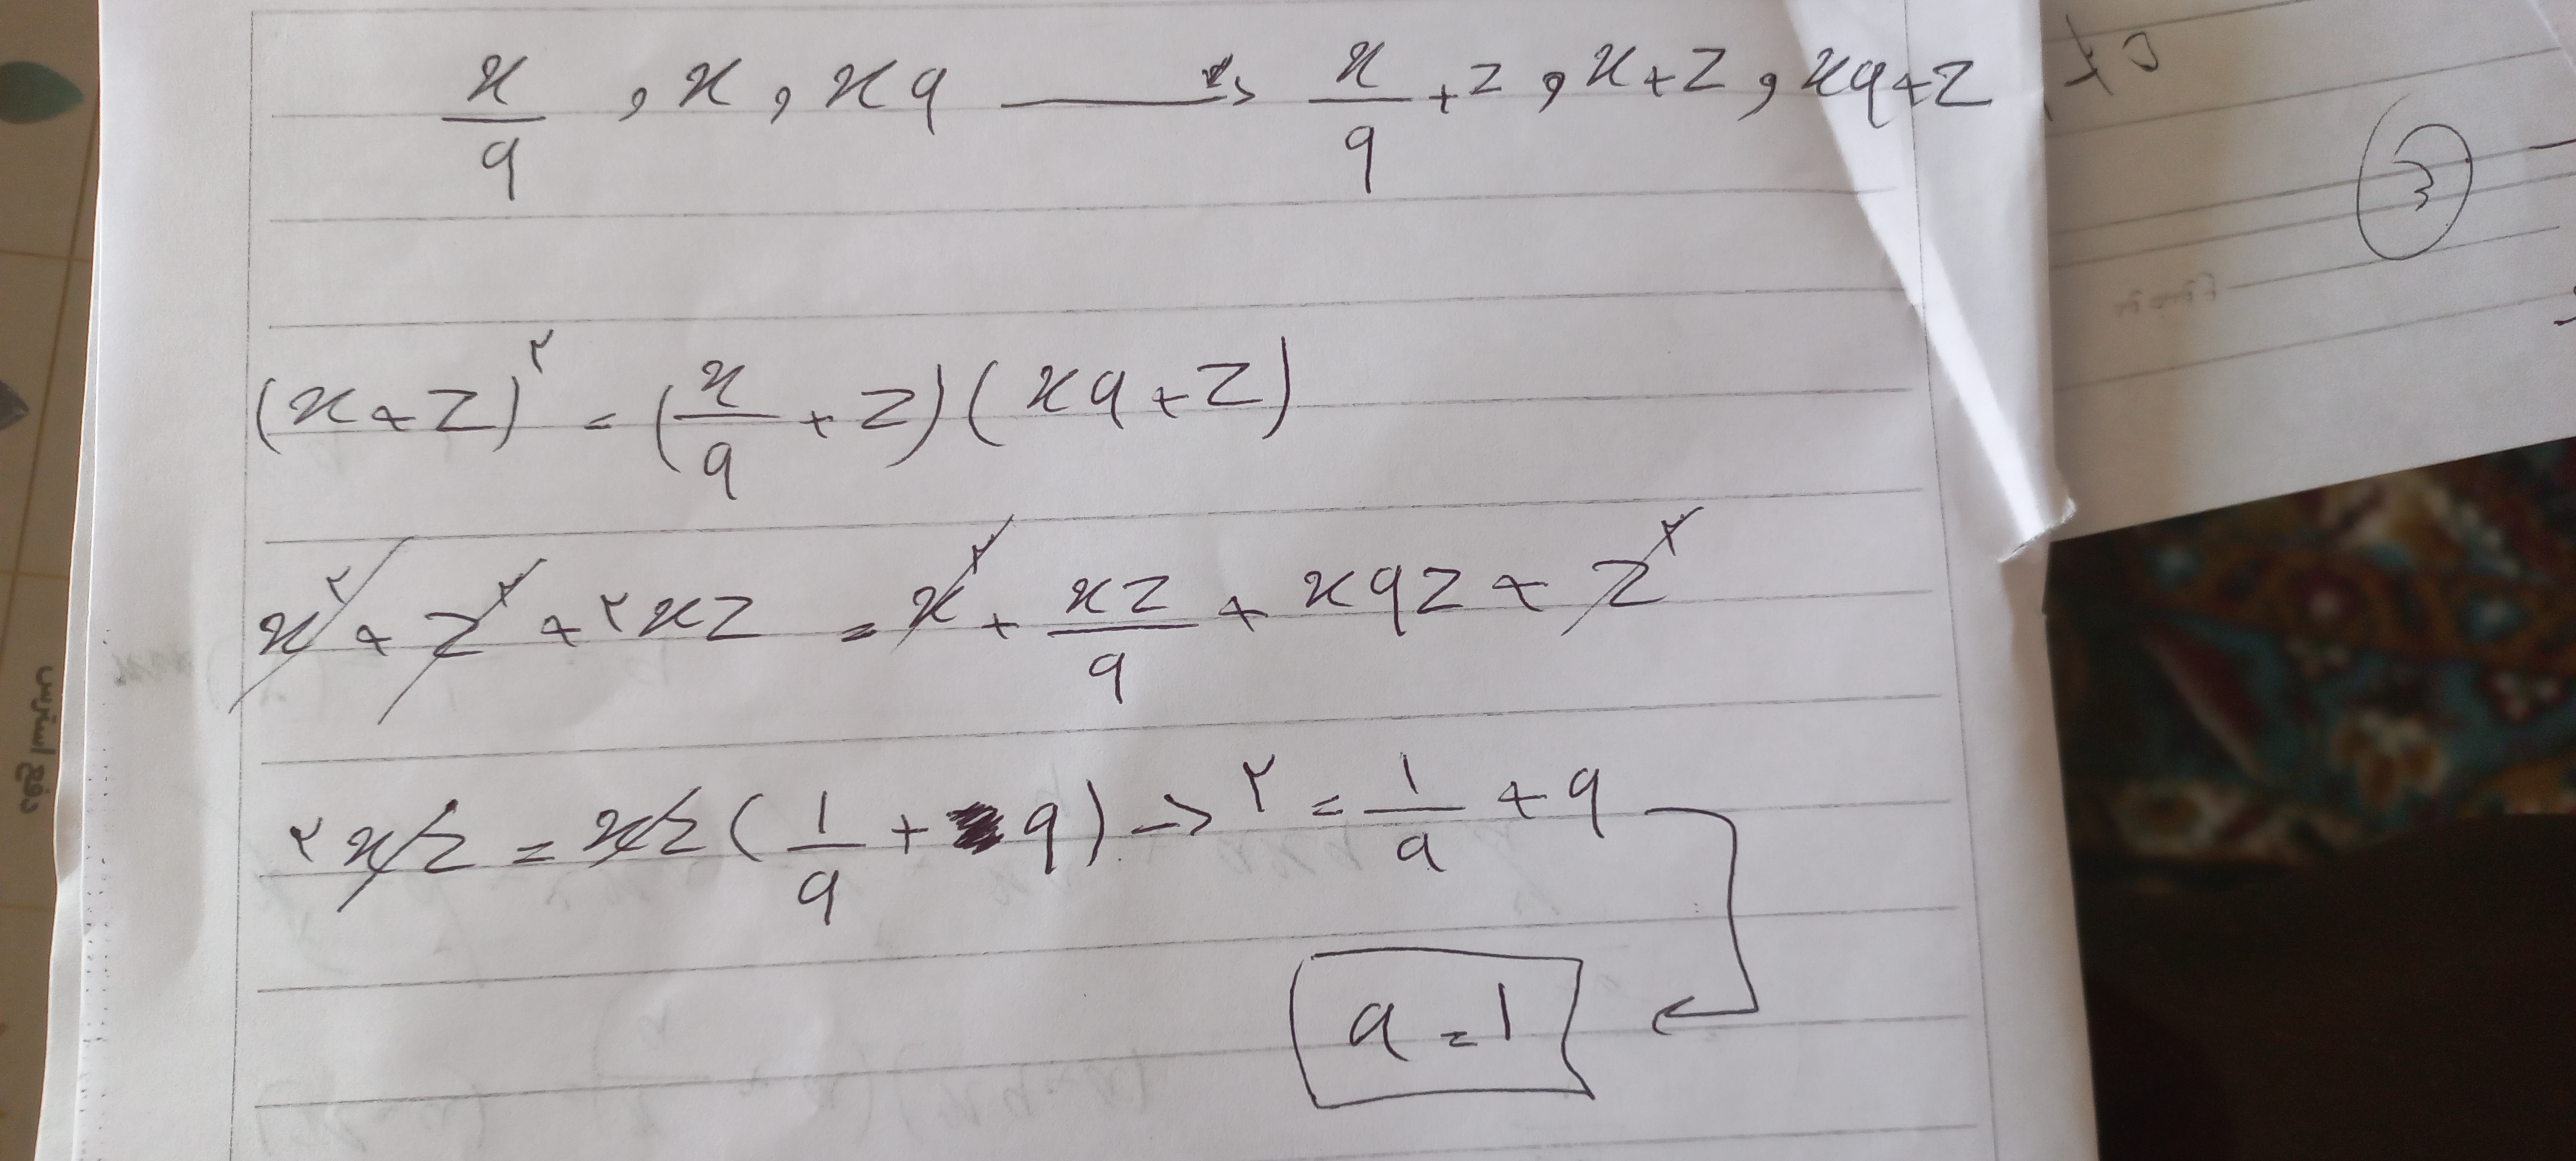 x/q , x , xq → x/q + z , x+z , xq+z
(x+z)^۲ = (x/q + z)(xq+z)
x^۲ + z^۲ + ۲xz = x^۲ + xz/q + xqz + z^۲
۲xz = xz(۱/q + q) → ۲ = ۱/q + q
q = ۱
3
دفع استرس